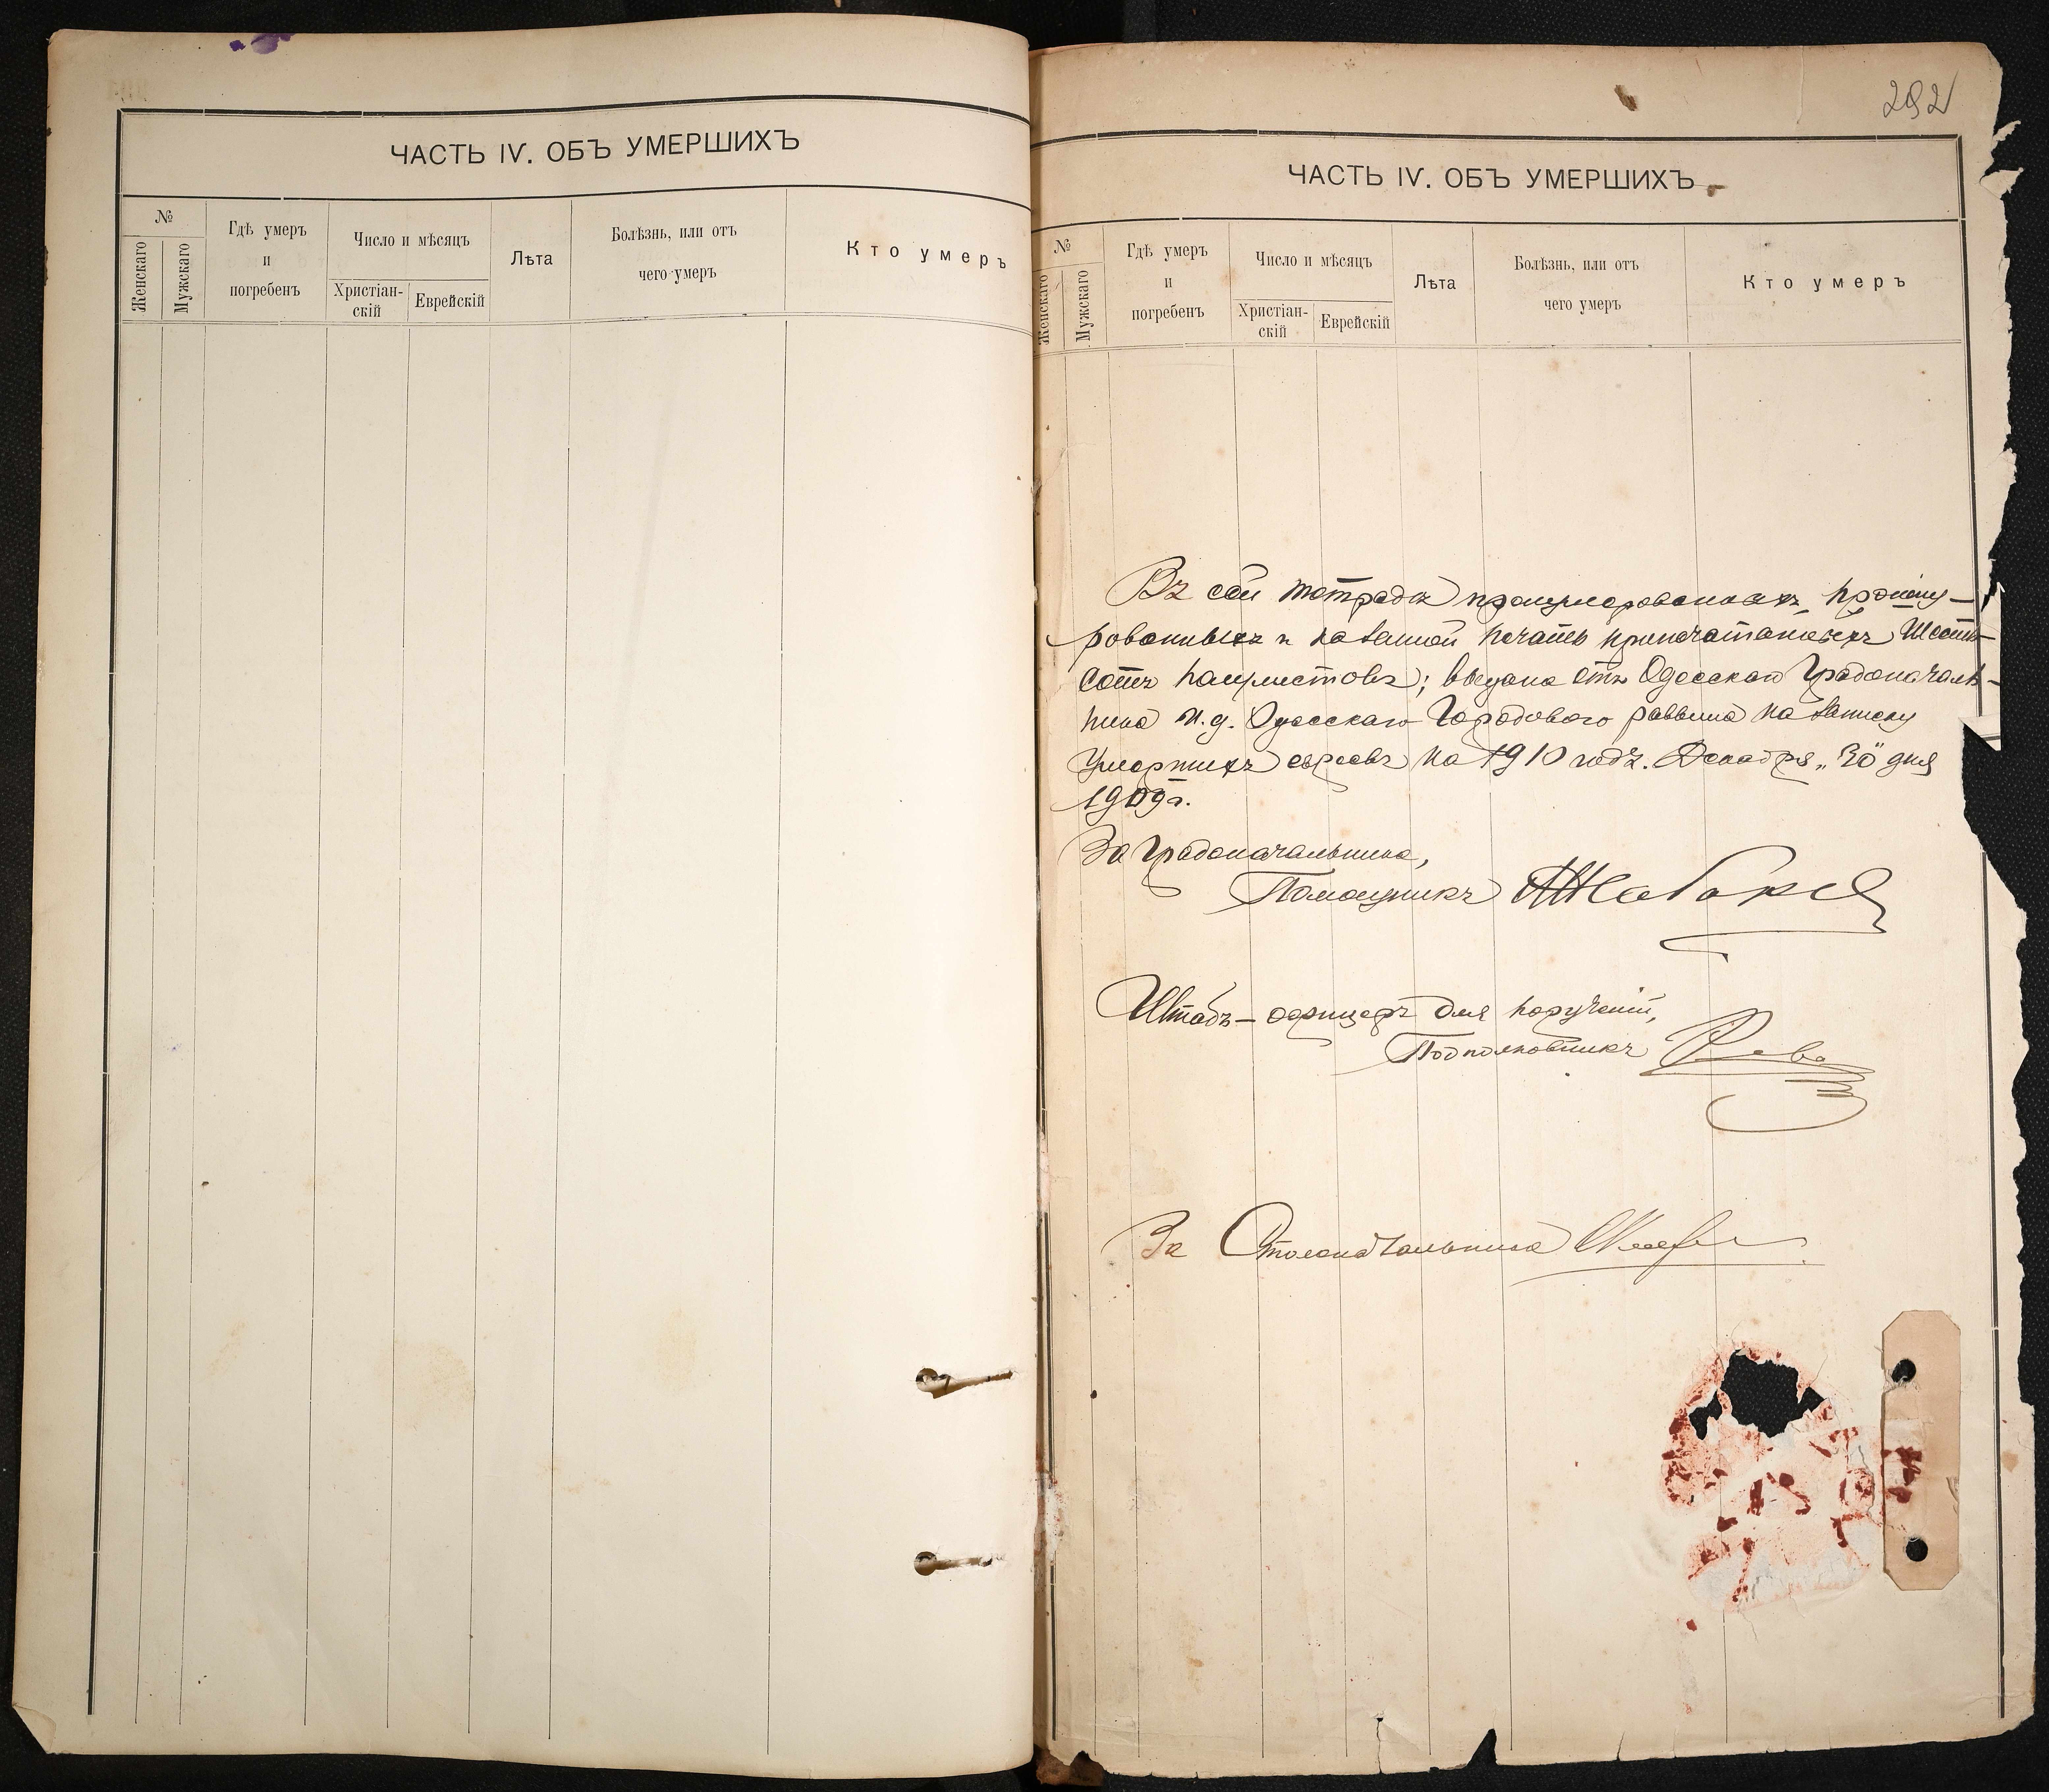 ЧАСТЬ IV. ОБЪ УМЕРШИХЪ
№
Женскаго
Мужскаго
Гдѣ умеръ
и
погребенъ
Число и мѣсяцъ
Христіан-
скій
Еврейскій
Лѣта
Болѣзнь, или отъ
чего умеръ
Кто умеръ
292
ЧАСТЬ IV. ОБЪ УМЕРШИХЪ
№
Женскаго
Мужскаго
Гдѣ умеръ
и
погребенъ
Число и мѣсяцъ
Христіан-
скій
Еврейскій
Лѣта
Болѣзнь, или отъ
чего умеръ
Кто умеръ
Въ сей тетради пронумерованныхъ, прошну-
рованныхъ и казенной печатью припечатанныхъ Шесть-
сотъ полулистовъ; выдана отъ Одесскаго Градоначаль-
ника И.д. Одесскаго Городового раввина на записку
Умершихъ евреевъ на 1910 годъ. Декабря „30" дня
1909 г.
За Градоначальника,
Помощникъ
Штабъ-офицеръ для порученій,
Подполковникъ
За Столоначальника